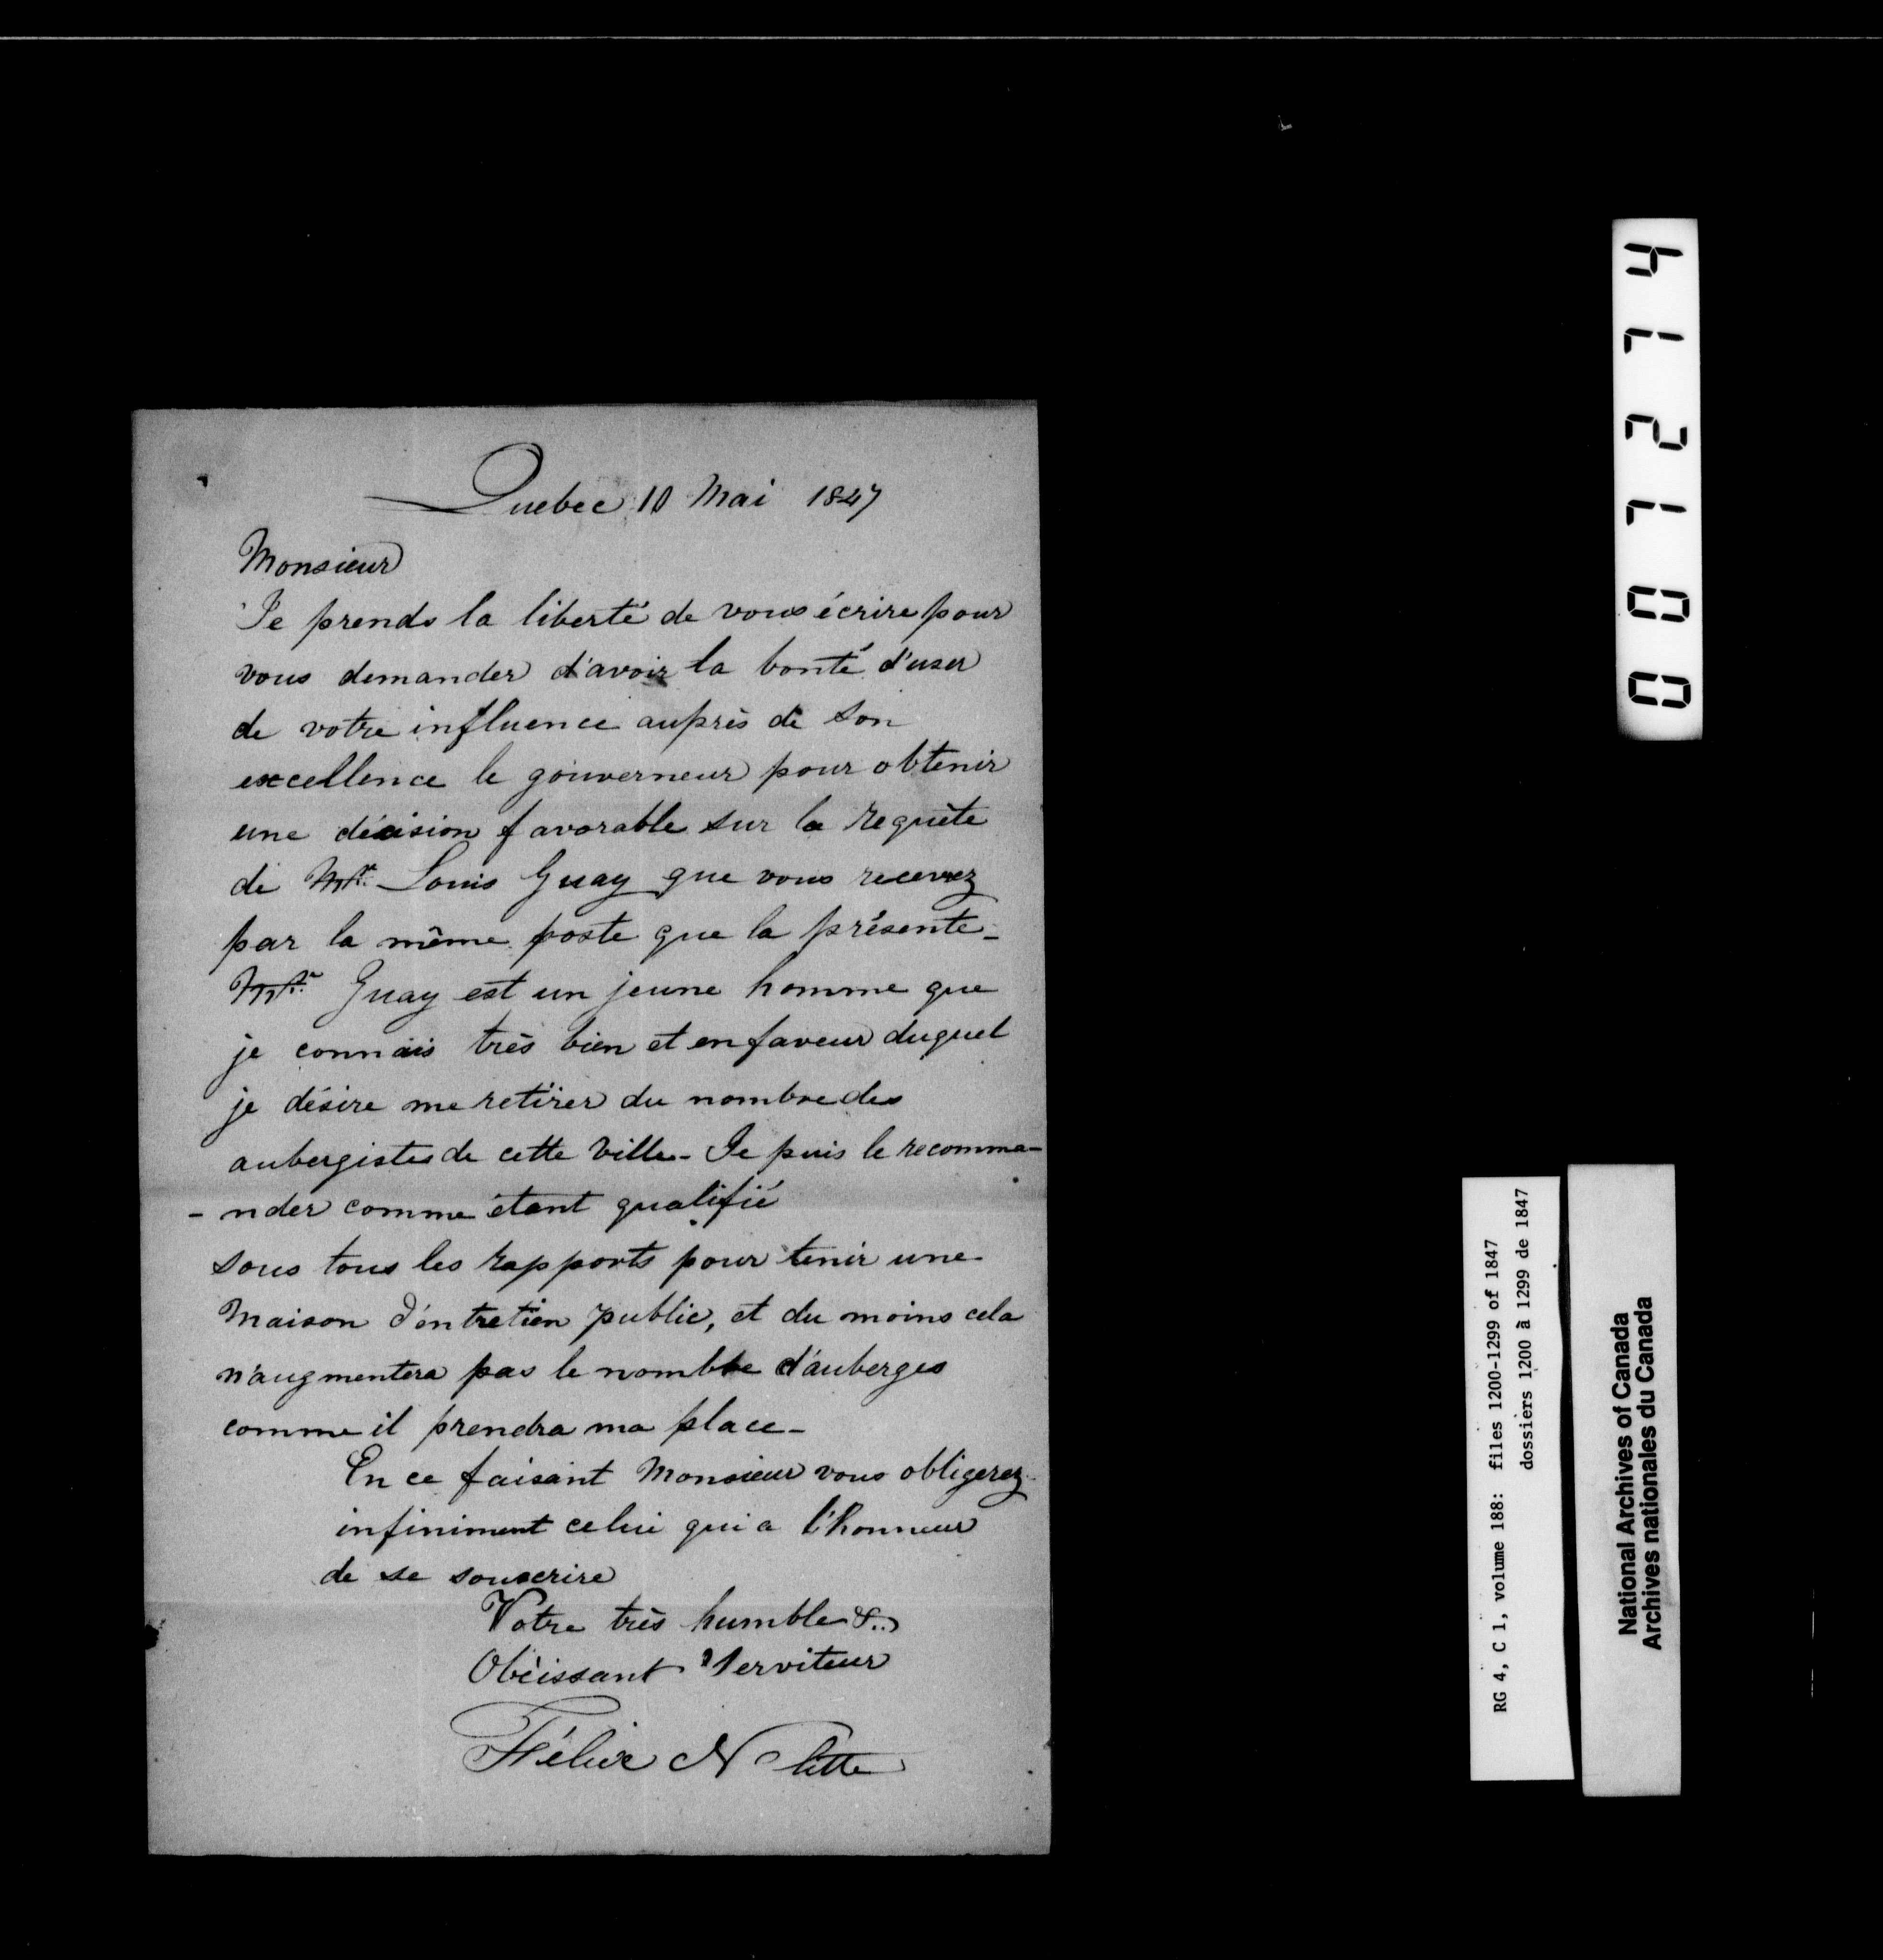 Quebec 10 Mai 1847
Monsieur
Je prends la liberté de vous écrire pour
vous demander d'avoir la bonté d'user
de votre influence auprès de Son
excellence le gouverneur pour obtenir
une décision favorable sur la requête
de Mr. Louis Guay que vous recevrez
par la même poste que la présente -
Mr. Guay est un jeune homme que
je connais très bien et en faveur duquel
je désire me retirer du nombre des
aubergistes de cette Ville - Je puis le recomma-
- nder comme étant qualifié
sous tous les rapports pour tenir une
Maison d'entretien public, et du moins cela
n'augmentera pas le nombre d'auberges
comme il prendra ma place -
En ce faisant Monsieur vous obligerez
infiniment celui qui a l'honneur
de se souscrire
Votre très humble &..
Obéissant Serviteur
Félix N
001214
RG 4, C 1, volume 188: files 1200-1299 of 1847
dossiers 1200 à 1299 de 1847
National Archives of Canada
Archives nationales du Canada